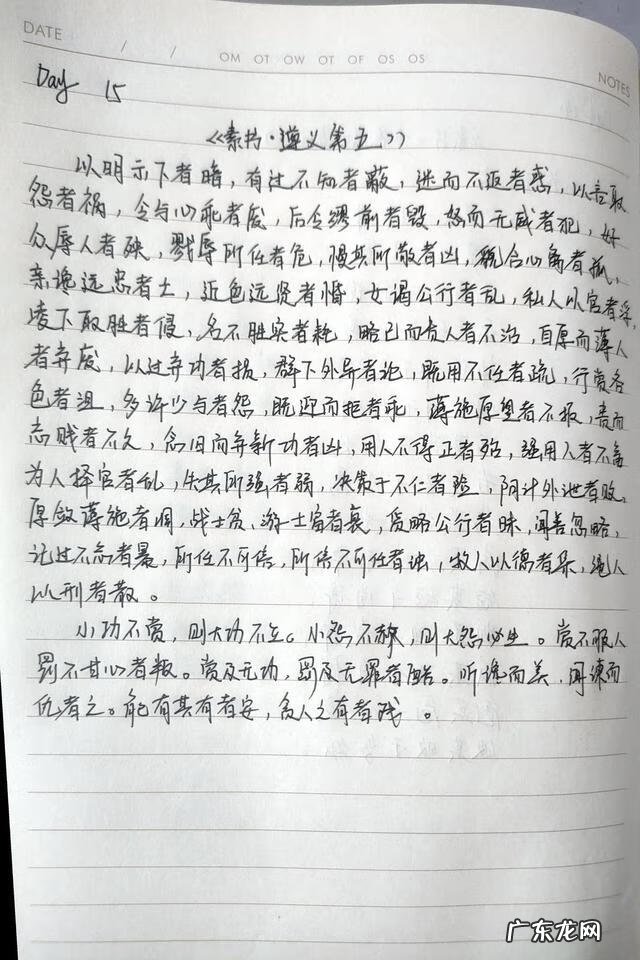 DATE / / OM OT OW OT OF OS OS
NOTES
Day 15
《素书·遵义第五》
以明示下者暗，有过不知者蔽，迷而不返者惑，以言取
怨者祸，令与心乖者废，后令缪前者毁，怒而无威者犯，好
众辱人者殃，戮辱所任者危，慢其所敬者凶，貌合心离者孤，
亲谗远忠者亡，近色远贤者惛，女谒公行者乱，私人以官者浮，
凌下取胜者侵，名不胜实者耗，略己而责人者不治，自厚而薄人
者弃废，以过弃功者损，群下外异者沦，既用不任者疏，行赏吝
色者沮，多许少与者怨，既迎而拒者乖，薄施厚望者不报，贵而
忘贱者不久，念旧而弃新功者凶，用人不得正者殆，强用人者不畜
为人择官者乱，失其所强者弱，决策于不仁者险，阴计外泄者败，
厚敛薄施者凋，战士贫，游士富者衰，货赂公行者昧，闻善忽略，
记过不忘者暴，所任不可信，所信不可任者浊，牧人以德者集，绳人
以刑者散。
小功不赏，则大功不立。小怨不赦，则大怨必生。赏不服人
罚不甘心者叛。赏及无功，罚及无罪者酷。听谗而美，闻谏而
仇者亡。能有其有者安，贪人之有者残。
广东龙网